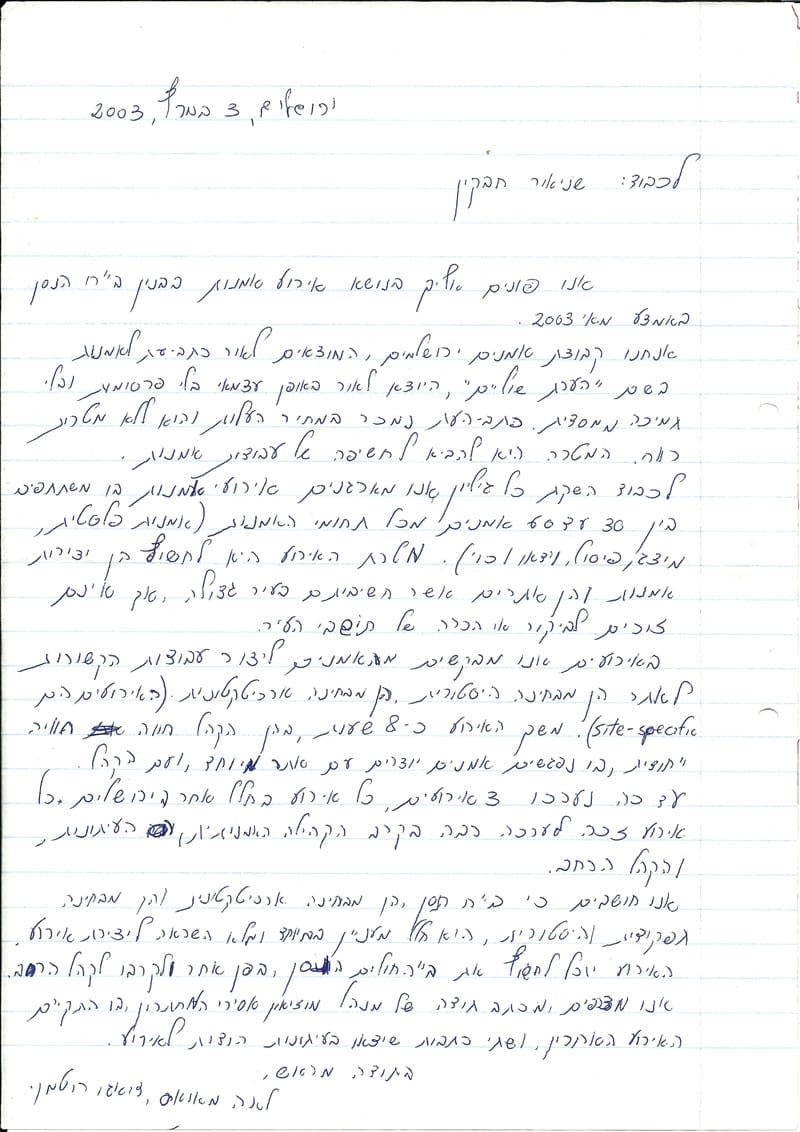 ירושלים, 3 במרץ, 2003
לכבוד: שניאור חבקין
אנו פונים אליך בנושא אירוע אמנות בבנין בי"ח הנסן
באמצע מאי 2003.
אנחנו קבוצת אמנים ירושלמים, המוצאים לאור כתב-עת לאמנות
בשם "הערת שוליים", היוצא לאור באופן עצמאי בלי פרסומות ובלי
תמיכה ממסדית. כתב-העת נמכר במחיר העלות והוא ללא מטרות
רווח. המטרה היא להביא לחשיפה של עבודות אמנות.
לכבוד השקת כל גיליון אנו מארגנים אירועי אמנות בו משתתפים
בין 30 עד אמנים מכל תחומי האמנות (אמנות פלסטית,
מיצג, פיסול, וידאו וכו'). מטרת האירוע היא לחשוף הן יצירות
אמנות והן אתרים אשר חשיבותם בעיר גדולה, אך אינם
זוכים לביקור או הכרה של תושבי העיר.
באירועים אנו מבקשים מהאמנים ליצור עבודות הקשורות
לאתר הן מבחינה היסטורית, הן מבחינה ארכיטקטונית. (האירועים הם
site-specific). משך האירוע כ-8 שעות, בהן הקהל חווה חוויה
יחודית, בו נפגשים אמנים יוצרים עם אתר מיוחד, ועם הקהל.
עד כה נערכו 3 אירועים, כל אירוע בחלל אחר בירושלים. כל
אירוע זכה להערכה רבה בקרב הקהילה האמנותית, העיתונות,
והקהל הרחב.
אנו חושבים כי בי"ח הנסן, הן מבחינה ארכיטקטונית והן מבחינה
תפקודית והיסטורית, הוא חלל מעניין במיוחד ומלא השראה ליצירת אירוע.
האירוע יוכל לחשוף את בי"החולים הנסן, בפן אחר ולקרבו לקהל הרחב.
אנו מצרפים, מכתב תודה של מנהל מוזיאון אסירי המחתרות, בו התקיים
האירוע האחרון, ושתי כתבות שיצאו בעיתונות הודות לאירוע.
בתודה מראש,
לאה מאואס, דיאגו רוטמן.